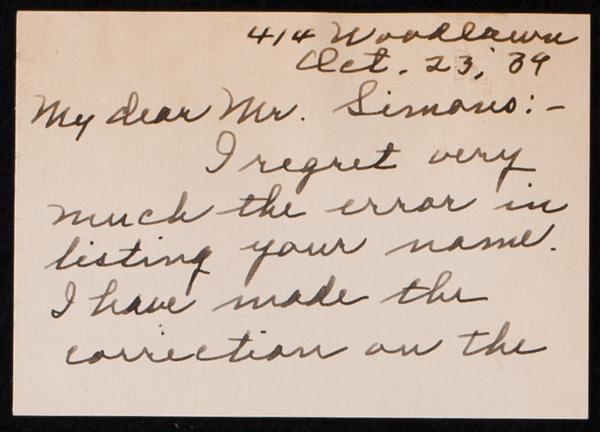 414 Woodlawn
Oct. 23, '39
My dear Mr. Simons:-
I regret very
much the error in
listing your name.
I have made the
correction on the